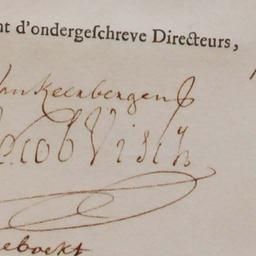 nt d'ondergeſchreve Directeurs,
van Keerbergen
Jacob Visch
geboekt